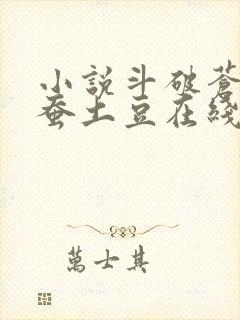 小說斗破蒼
蚕土豆在綫
萬士其